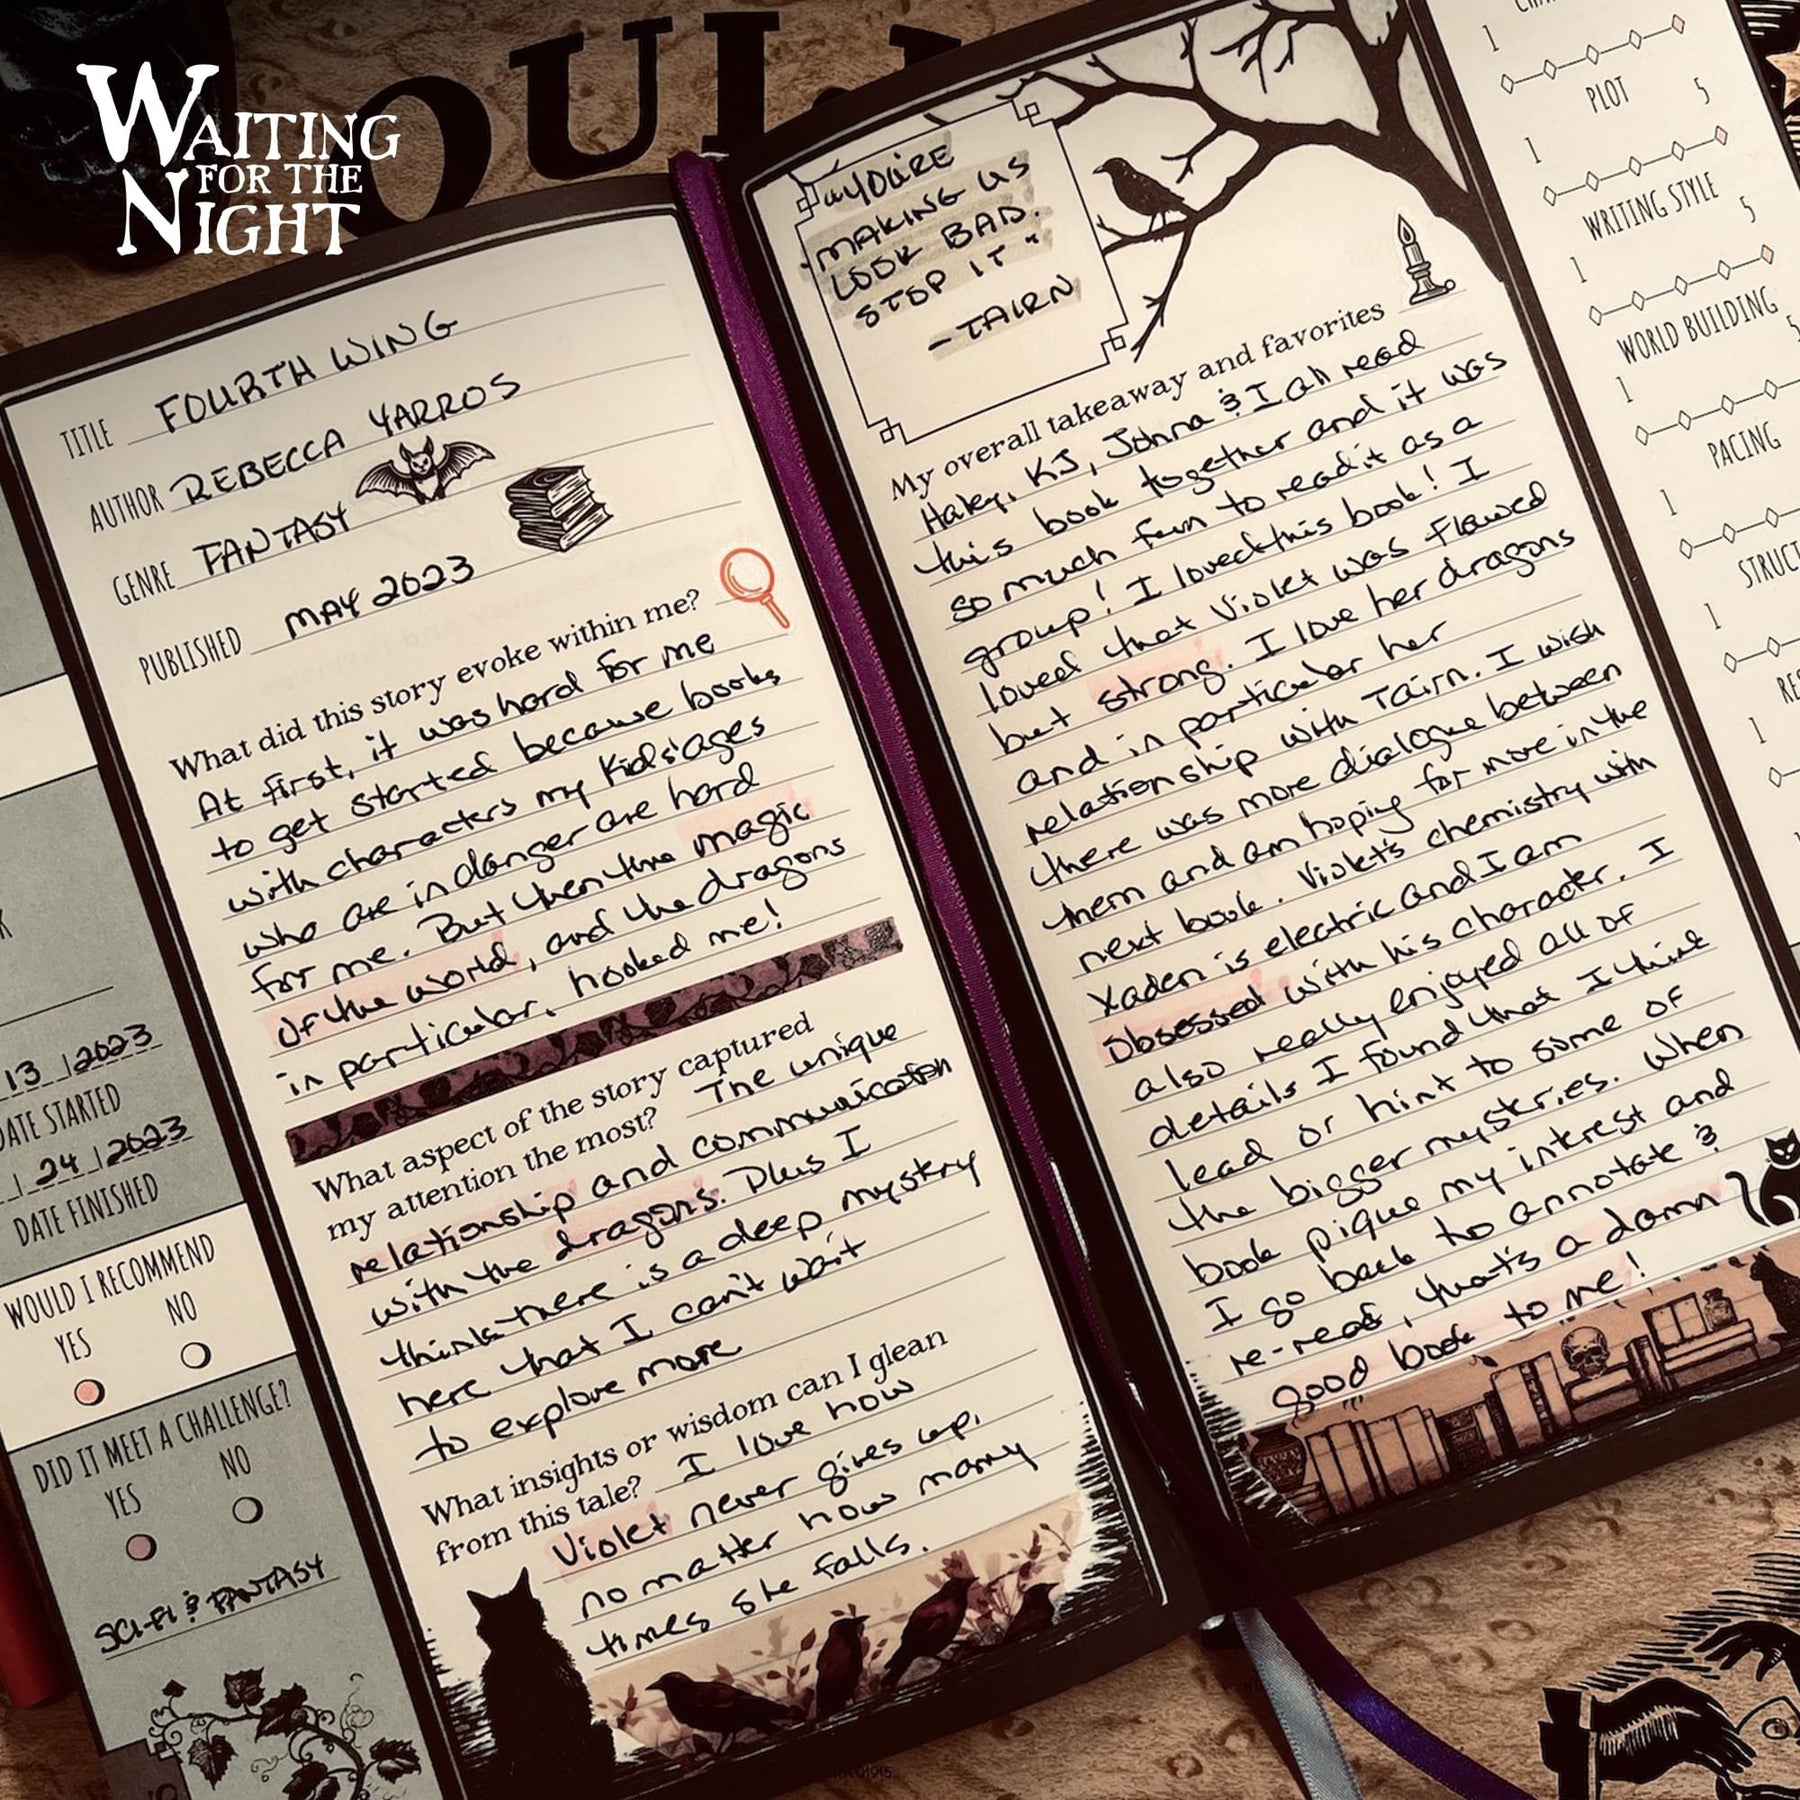 WAITING
FOR THE
NIGHT
OUI
TITLE FOURTH WING
AUTHOR REBECCA YARROS
GENRE FANTASY
PUBLISHED MAY 2023
What did this story evoke within me?
At first, it was hard for me
to get started because books
with characters my kids' ages
who are in danger are hard
for me. But then the magic
of the world, and the dragons
in particular, hooked me!
What aspect of the story captured
my attention the most? The unique
relationship and communication
with the dragons. Plus I
think there is a deep mystery
here that I can't wait
to explore more
What insights or wisdom can I glean
from this tale? I love how
Violet never gives up,
no matter how many
times she falls.
13 | 2023
DATE STARTED
24 | 2023
DATE FINISHED
WOULD I RECOMMEND
YES NO
DID IT MEET A CHALLENGE?
YES NO
SCI-FI & FANTASY
"YOU'RE
MAKING US
LOOK BAD.
STOP IT"
- TAIRN
My overall takeaway and favorites
Haley, KJ, Johna & I all read
this book together and it was
so much fun to read it as a
group! I loved this book! I
loved that Violet was flawed
but strong. I love her dragons
and in particular her
relationship with Tairn. I wish
there was more dialogue between
them and am hoping for more in the
next book. Violet's chemistry with
Xaden is electric and I am
obsessed with his character. I
also really enjoyed all of
details I found that I think
lead or hint to some of
the bigger mysteries. When
book pique my interest and
I go back to annotate &
re-read, that's a damn
good book to me!
1
PLOT
1 5
WRITING STYLE
1 5
WORLD BUILDING
1 5
PACING
1
STRUCT
1
RE
1